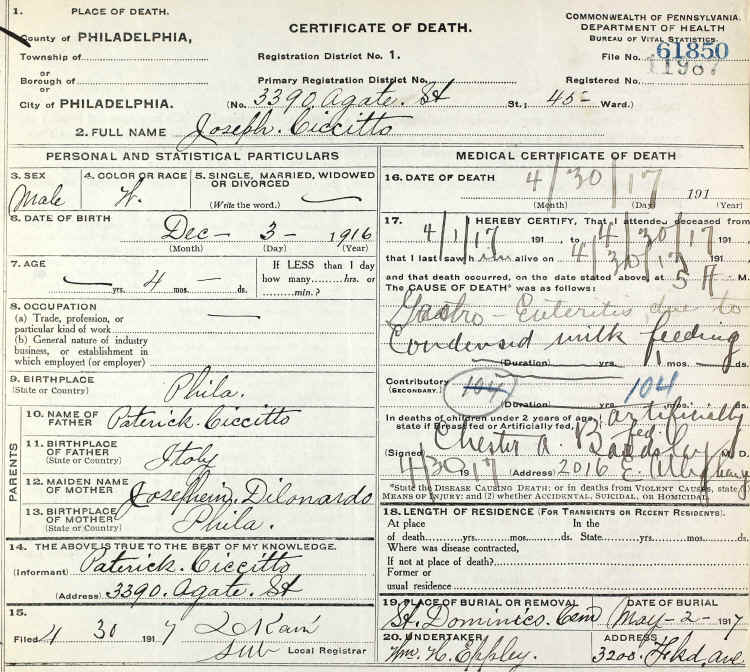 1. PLACE OF DEATH.
County of PHILADELPHIA,
Township of
or
Borough of
or
City of PHILADELPHIA.
CERTIFICATE OF DEATH.
Registration District No. 1.
Primary Registration District No.
(No. 3390 Agate. St St.; 45 - Ward.)
COMMONWEALTH OF PENNSYLVANIA.
DEPARTMENT OF HEALTH
BUREAU OF VITAL STATISTICS.
File No. 61850
Registered No. 11987
2. FULL NAME Joseph. Ciccitto
PERSONAL AND STATISTICAL PARTICULARS
3. SEX
Male
4. COLOR OR RACE
W.
5. SINGLE, MARRIED, WIDOWED
OR DIVORCED
(Write the word.)
6. DATE OF BIRTH
Dec - 3 - 1916
(Month) (Day) (Year)
7. AGE
— yrs. 4 mos. — ds.
If LESS than 1 day
how many hrs. or
min.?
8. OCCUPATION
(a) Trade, profession, or
particular kind of work
(b) General nature of industry
business, or establishment in
which employed (or employer)
9. BIRTHPLACE
(State or Country)
Phila.
PARENTS
10. NAME OF
FATHER
Paterick. Ciccitto
11. BIRTHPLACE
OF FATHER
(State or Country)
Italy
12. MAIDEN NAME
OF MOTHER
Dilonardo
13. BIRTHPLACE
OF MOTHER
(State or Country)
Phila.
14. THE ABOVE IS TRUE TO THE BEST OF MY KNOWLEDGE.
(Informant) Paterick. Ciccitto
(Address) 3390. Agate. St
15.
Filed 4 30 1917
Sub Local Registrar
MEDICAL CERTIFICATE OF DEATH
16. DATE OF DEATH
4/30/17 191
(Month) (Day) (Year)
17. I HEREBY CERTIFY, That I attended deceased from
4/1/17 191 , to 4/30/17 191
that I last saw him alive on 4/30/17 191
and that death occurred, on the date stated above, at 5 A M.
The CAUSE OF DEATH* was as follows:
Gastro-Enteritis due to
Condensed milk feeding
(Duration) yrs. 1 mos. ds.
Contributory
(SECONDARY.)
104 104
(Duration) yrs. mos. ds.
In deaths of children under 2 years of age,
state if Breast fed or Artificially fed,
artificially
fed.
(Signed) Chester A. M.D.
4/30 1917 (Address) 2016 E.
*State the DISEASE CAUSING DEATH; or in deaths from VIOLENT CAUSES, state
MEANS OF INJURY; and (2) whether ACCIDENTAL, SUICIDAL, OR HOMICIDAL.
18. LENGTH OF RESIDENCE (FOR TRANSIENTS OR RECENT RESIDENTS).
At place In the
of death yrs. mos. ds. State yrs. mos. ds.
Where was disease contracted,
If not at place of death?
Former or
usual residence
19. PLACE OF BURIAL OR REMOVAL
St. Dominics. Cem
DATE OF BURIAL
May - 2 - 1917
20. UNDERTAKER
Wm. H. Eppley
ADDRESS
3200. Fkd. ave.